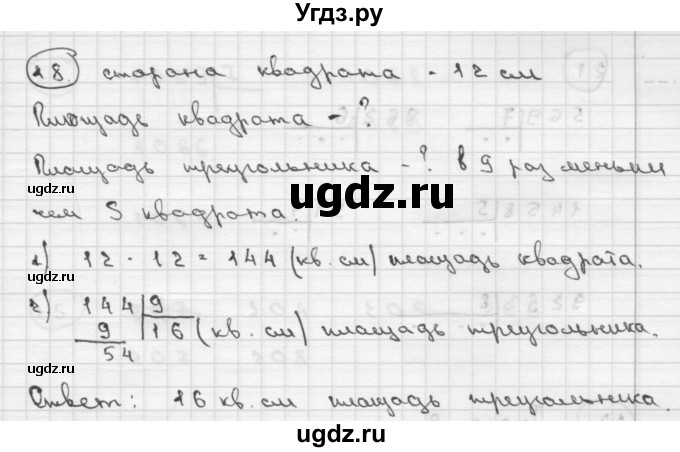 Угзд.ру
18. сторона квадрата - 12 см
Площадь квадрата - ?
Площадь треугольника - ? в 9 раз меньши
ugdz.ru
угдз.ру
чем S квадрата.
1) 12 · 12 = 144 (кв. см) площадь квадрата.
ugdz.ru
2) 144 | 9
9 | 16 (кв. см) площадь треугольника.
54
ugdz.ru
Ответ: 16 кв. см площадь треугольника.
ugdz.ru
ugdz.ru